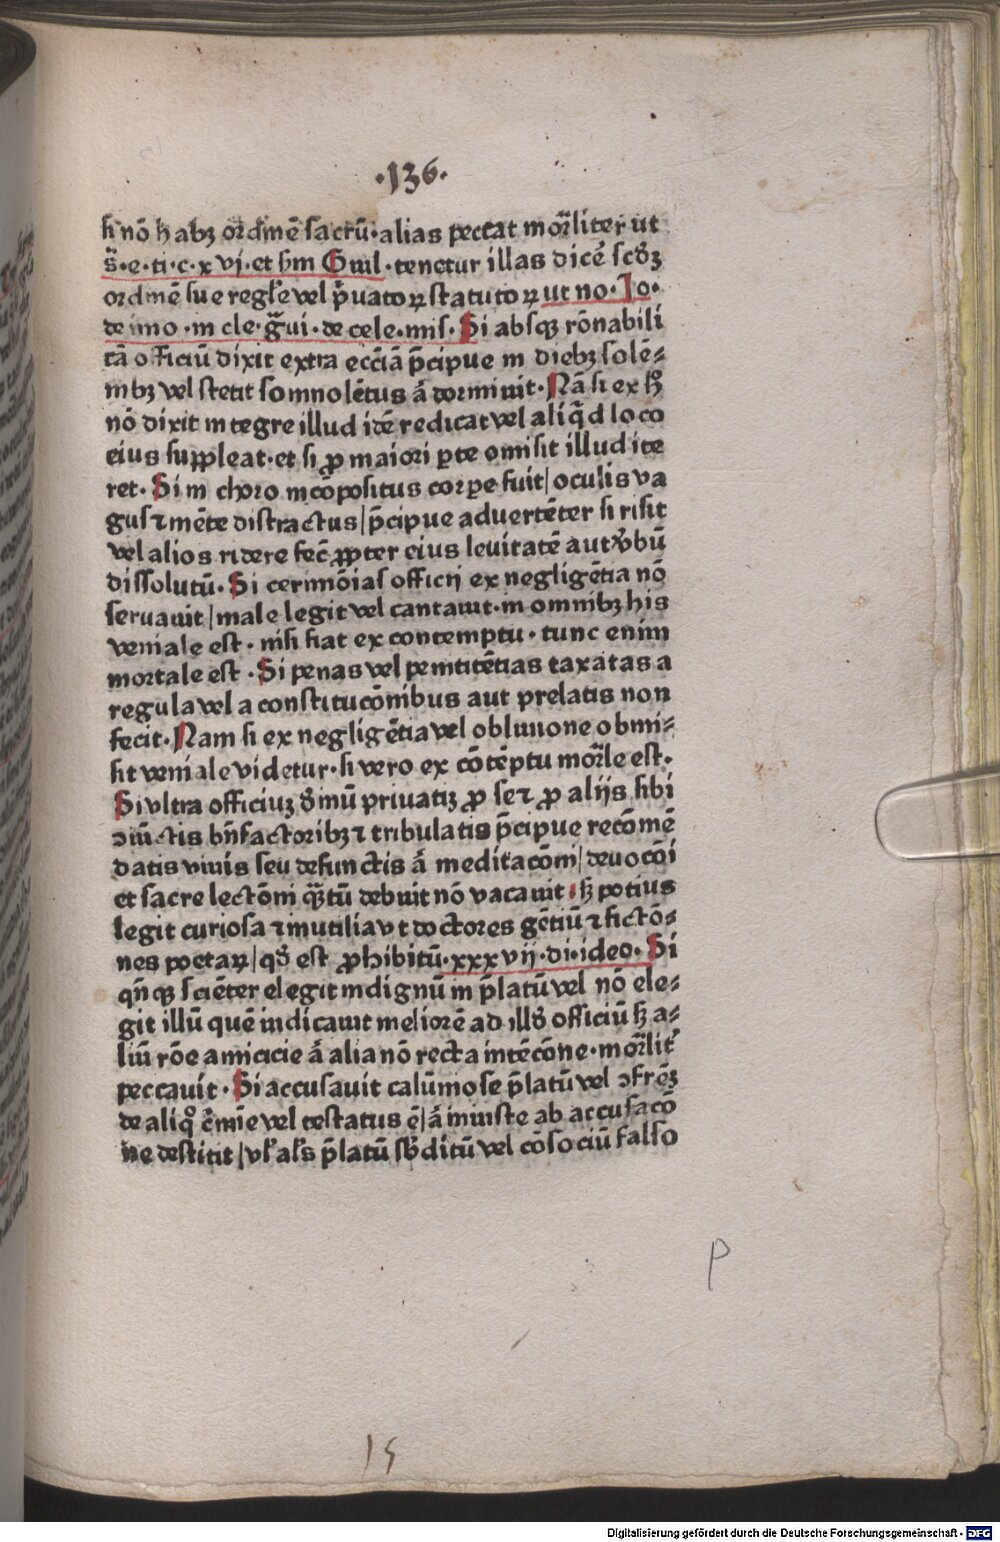 ·136·
si nō habꝫ ordinē sacrū·alias peccat mor̄liter ut
s̄·e·ti·c·x vj·et hm Guil·tenetur illas dicē scd̄ꝫ
ordinē sue regl̄e vel p̄uatoꝝ statutoꝝ ut no·Io·
de imo·in cle·ḡui·de cele·mis·Si absqꝫ rōnabili
cā officiū dixit extra ecc̄iā p̄cipue in diebꝫ solē⸗
nibꝫ vel stetit somnolētus ā dormiuit·Nā si ex h̄ͦ
nō dixit integre illud idē redicat vel aliq̄d loco
eius suppleat·et si ꝓ maiori ꝑte omisit illud ite
ret·Si in choro incōpositus corꝑe fuit/oculis va
gus ⁊ mēte distractus/p̄cipue aduertēter si risit
vel alios ridere fec̄ ꝓpter eius leuitatē aut v̄bū
dissolutū·Si cerimōias officij ex negligētia nō
seruauit/male legit vel cantauit·in omnibꝫ his
veniale est·nisi fiat ex contemptu·tunc enim
mortale est·Si penas vel penitētias taxatas a
regula vel a constitucōnibus aut prelatis non
fecit·Nam si ex negligētia vel obliuione obmi⸗
sit veniale videtur·si vero ex cōtēptu mor̄le est·
Si vltra officiuꝫ d̄inū priuatiꝫ ꝓ se ⁊ ꝓ alijs sibi
ↄiūctis bn̄factoribꝫ ⁊ tribulatis p̄cipue recōmē
datis viuis seu defunctis ā meditacōni/deuocōi
et sacre lectōni q̄ꝫtū debuit nō vacauit·sꝫ potius
legit curiosa ⁊ inutilia vt doctores gētiū ⁊ fictō⸗
nes poetaꝝ/qd̄ est ꝓhibitū·xxxvij·di·ideo·Si
qn̄qꝫ sciēter elegit indignū in p̄latū vel nō ele⸗
git illū quē iudicauit meliorē ad illd̄ officiū sꝫ a⸗
liū rōe amicicie ā alia nō recta intēcōne·mor̄lit̄
peccauit·Si accusauit calūniose p̄latū vel ↄfrēꝫ
de aliqͦ c̄mīe vel testatus ē/ā iniuste ab accusacō
ne destitit/vl̄ al̄s p̄latū sb̄ditū vel cōsociū falso
P
15
Digitalisierung gefördert durch die Deutsche Forschungsgemeinschaft · DFG